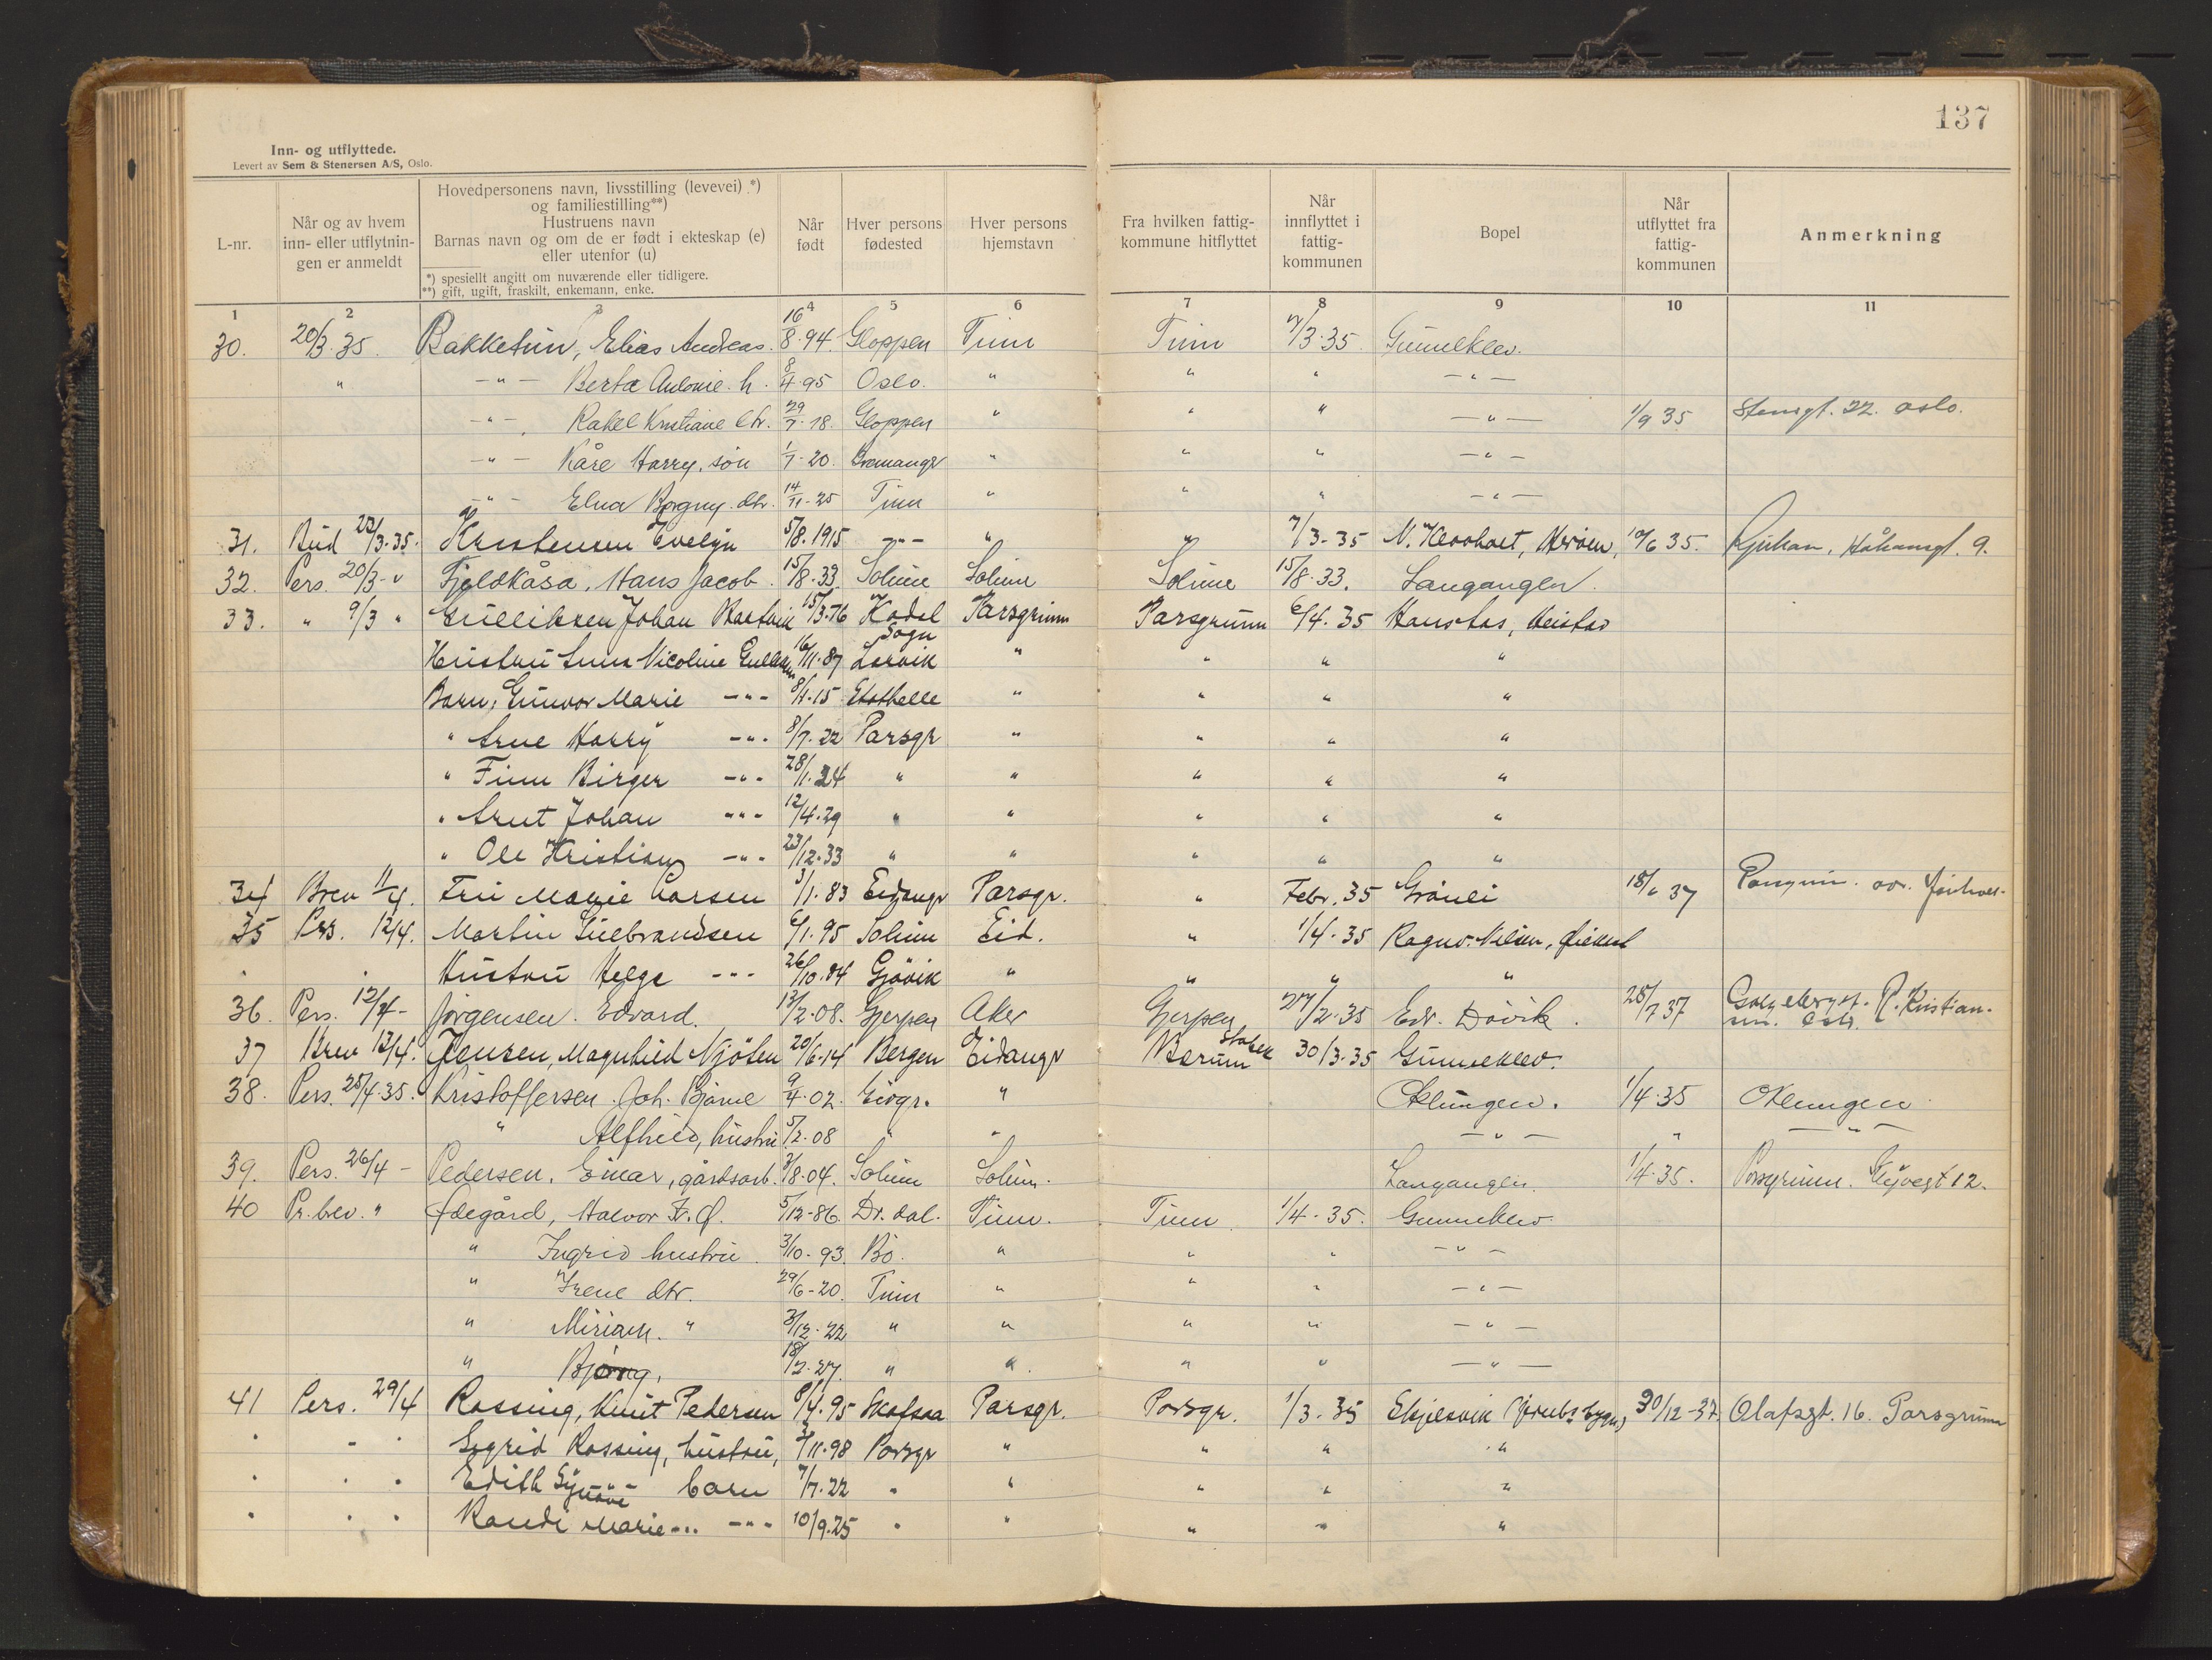 137
Inn- og utflyttede.
Levert av Sem & Stenersen A/S, Oslo.
L-nr. | Når og av hvem inn- eller utflytnin-gen er anmeldt | Hovedpersonens navn, livsstilling (levevei) *) og familiestilling**) Hustruens navn Barnas navn og om de er født i ekteskap (e) eller utenfor (u) *) spesiellt angitt om nuværende eller tidligere. **) gift, ugift, fraskilt, enkemann, enke. | Når født | Hver persons fødested | Hver persons hjemstavn | Fra hvilken fattig-kommune hitflyttet | Når innflyttet i fattig-kommunen | Bopel | Når utflyttet fra fattig-kommunen | Anmerkning
1 2 3 4 5 6 7 8 9 10 11
30. 20/3.35. Bakketun, Elias Andreas. 16/8.94. Gloppen Tinn Tinn 7/3.35 Gunneklev.
" -"- Berta Antonie h. 8/4.95 Oslo. " " " -"-
-"- Rakel Kristiane dtr. 29/7.18. Gloppen " " " -"- 1/9 35 Stensgt. 22. Oslo.
-"- Kåre Harry, søn 1/7-20. Bremanger " " " -"-
-"- Elna Borgny dtr. 14/11-25 Tinn " " " -"-
31. Bud 23/3.35. Kristensen Evelyn 5/8.1915 -"- " " 7/3-35 N. Herøen, 10/6 35. Rjukan, Håkonsgt. 9.
32. Pers. 20/3-" Fjeldkåsa, Hans Jacob. 15/8.33 Solum Solum Solum 15/8.33. Langangen.
33. " 9/3 " Gulliksen Johan 15/3.76 Porsgrunn Porsgrunn 6/4.35 Heistad
Hustru Anna Nicoline Gulliksen 16/11.87 Larvik " " " "
Barn, Gunvor Marie -"- 8/4.15 Stathelle " " " "
" Arne Harry -"- 8/7.22 Porsgr " " " "
" Finn Birger -"- 28/1.24 " " " " "
" Arnt Johan -"- 12/4.29 " " " " "
" Ole Kristian -"- 23/12.33 " " " " "
34 Brev 11/4. Fru Marie Larsen 3/1.83 Eidanger Porsgr. " Febr. 35 Grønli 37
35 Pers. 12/4. Martin Hilbrandsen 6/1.95 Solum Eid. " 1/4.35 Ragnv. Nilsen,
" " Hustru Helga -"- 26/10.04 Gjøvik " " " "
36. Pers. 12/4- Jørgensen. Edvard. 13/2-08. Gjerpen Aker Gjerpen 27/2-35 Edv. Døvik. 28/7 37
37 Brev 13/4. Jensen, Magnhild Njøten 20/6-14 Bergen Eidanger Bærum Stabek 30/3-35 Gunneklev.
38. Pers. 25/4.35. Kristoffersen. Joh. Bjarne 9/4.02. Eidgr. " Oklungen. 1/4.35 Oklungen
" Alfhild, hustru 5/2-08 " " -"- " -"-
39. Pers. 26/4- Pedersen, Einar, gårdsarb. 3/8-04. Solum Solum. Langangen. 1/4-35. Porsgrunn.
40 Pr. brev. " Ødegård, Halvor 5/12-86. Dr.dal. Tinn. Tinn. 1/4-35. Gunneklev.
" Ingrid hustru 3/10-93. Bø. " " " -"-
" Irene dtr. 29/6-20. Tinn " " " -"-
" Miriam. " 3/12-22 " " " " -"-
" Bjørg, 18/7-27. " " " " -"-
41 Pers. 29/4 Rossing, Knut Pedersen 8/4.95 Skafsaa Porsgr. Porsgr. 1/3-35 Ekjelsvik 30/12-37 Olafsgt. 16. Porsgrunn
" " " Sigrid Rossing, hustru, 3/11.98 Porsgr " " " "
" " " Edith Synnøve -"- barn 7/7.22 " " " " "
" " " Randi Marie -"- -"- 10/9.25 " " " " "